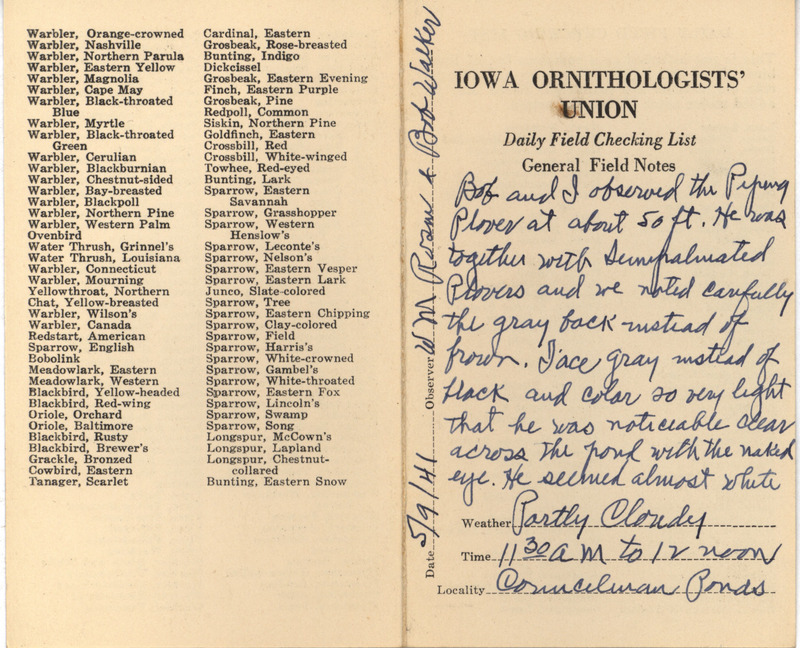 Warbler, Orange-crowned
Warbler, Nashville
Warbler, Northern Parula
Warbler, Eastern Yellow
Warbler, Magnolia
Warbler, Cape May
Warbler, Black-throated
Blue
Warbler, Myrtle
Warbler, Black-throated
Green
Warbler, Cerulian
Warbler, Blackburnian
Warbler, Chestnut-sided
Warbler, Bay-breasted
Warbler, Blackpoll
Warbler, Northern Pine
Warbler, Western Palm
Ovenbird
Water Thrush, Grinnel's
Water Thrush, Louisiana
Warbler, Connecticut
Warbler, Mourning
Yellowthroat, Northern
Chat, Yellow-breasted
Warbler, Wilson's
Warbler, Canada
Redstart, American
Sparrow, English
Bobolink
Meadowlark, Eastern
Meadowlark, Western
Blackbird, Yellow-headed
Blackbird, Red-wing
Oriole, Orchard
Oriole, Baltimore
Blackbird, Rusty
Blackbird, Brewer's
Grackle, Bronzed
Cowbird, Eastern
Tanager, Scarlet
Cardinal, Eastern
Grosbeak, Rose-breasted
Bunting, Indigo
Dickcissel
Grosbeak, Eastern Evening
Finch, Eastern Purple
Grosbeak, Pine
Redpoll, Common
Siskin, Northern Pine
Goldfinch, Eastern
Crossbill, Red
Crossbill, White-winged
Towhee, Red-eyed
Bunting, Lark
Sparrow, Eastern
Savannah
Sparrow, Grasshopper
Sparrow, Western
Henslow's
Sparrow, Leconte's
Sparrow, Nelson's
Sparrow, Eastern Vesper
Sparrow, Eastern Lark
Junco, Slate-colored
Sparrow, Tree
Sparrow, Eastern Chipping
Sparrow, Clay-colored
Sparrow, Field
Sparrow, Harris's
Sparrow, White-crowned
Sparrow, Gambel's
Sparrow, White-throated
Sparrow, Eastern Fox
Sparrow, Lincoln's
Sparrow, Swamp
Sparrow, Song
Longspur, McCown's
Longspur, Lapland
Longspur, Chestnut-
collared
Bunting, Eastern Snow
Date 5/9/41 Observer W. M. & Bob Walker
IOWA ORNITHOLOGISTS'
UNION
Daily Field Checking List
General Field Notes
Bob and I observed the Piping
Plover at about 50 ft. He was
together with Semipalmated
Plovers and we noted carefully
the gray back instead of
brown. Face gray instead of
black and color so very light
that he was noticeable clear
across the pond with the naked
eye. He seemed almost white
Weather Partly Cloudy
Time 11 30 A M to 12 noon
Locality Councilman Ponds